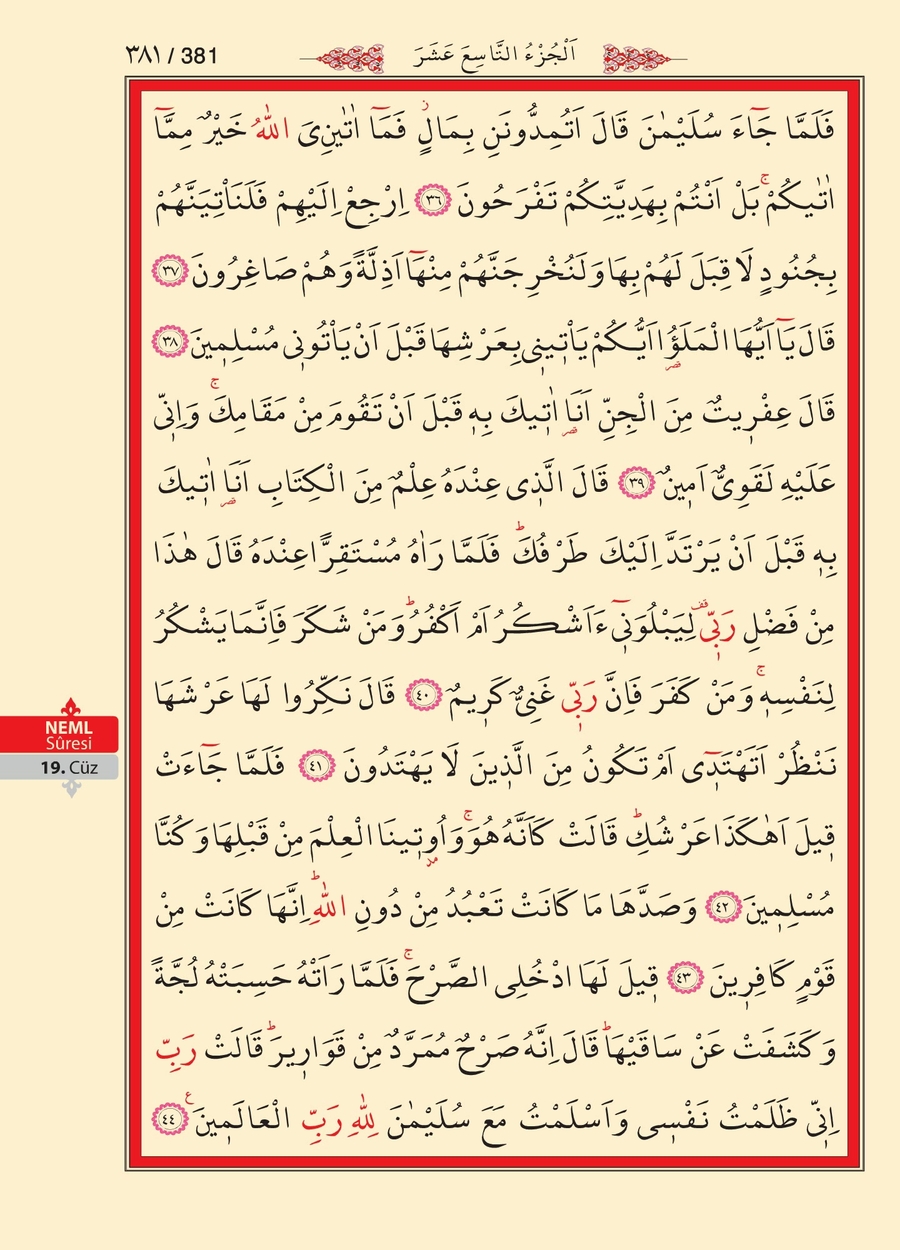 ٣٨١ / 381
اَلْجُزْءُ التَّاسِعَ عَشَرَ
فَلَمَّا جَٓاءَ سُلَيْمٰنَ قَالَ اَتُمِدُّونَنِ بِمَالٍۘ فَمَٓا اٰتٰينِيَ اللّٰهُ خَيْرٌ مِمَّٓا
اٰتٰيكُمْۚ بَلْ اَنْتُمْ بِهَدِيَّتِكُمْ تَفْرَحُونَ ﴿٣٦﴾ اِرْجِعْ اِلَيْهِمْ فَلَنَأْتِيَنَّهُمْ
بِجُنُودٍ لَا قِبَلَ لَهُمْ بِهَا وَلَنُخْرِجَنَّهُمْ مِنْهَٓا اَذِلَّةً وَهُمْ صَاغِرُونَ ﴿٣٧﴾
قَالَ يَٓا اَيُّهَا الْمَلَؤُا اَيُّكُمْ يَأْتِينِي بِعَرْشِهَا قَبْلَ اَنْ يَأْتُونِي مُسْلِمِينَ ﴿٣٨﴾
قَالَ عِفْرِيتٌ مِنَ الْجِنِّ اَنَا اٰتِيكَ بِهِ قَبْلَ اَنْ تَقُومَ مِنْ مَقَامِكَۚ وَاِنِّي
عَلَيْهِ لَقَوِيٌّ اَمِينٌ ﴿٣٩﴾ قَالَ الَّذِي عِنْدَهُ عِلْمٌ مِنَ الْكِتَابِ اَنَا اٰتِيكَ
بِهِ قَبْلَ اَنْ يَرْتَدَّ اِلَيْكَ طَرْفُكَۜ فَلَمَّا رَاٰهُ مُسْتَقِرًّا عِنْدَهُ قَالَ هٰذَا
مِنْ فَضْلِ رَبِّي لِيَبْلُوَنِٓي ءَاَشْكُرُ اَمْ اَكْفُرُۜ وَمَنْ شَكَرَ فَاِنَّمَا يَشْكُرُ
لِنَفْسِهِۚ وَمَنْ كَفَرَ فَاِنَّ رَبِّي غَنِيٌّ كَرِيمٌ ﴿٤٠﴾ قَالَ نَكِّرُوا لَهَا عَرْشَهَا
نَنْظُرْ اَتَهْتَدِٓي اَمْ تَكُونُ مِنَ الَّذِينَ لَا يَهْتَدُونَ ﴿٤١﴾ فَلَمَّا جَٓاءَتْ
قِيلَ اَهٰكَذَا عَرْشُكِۜ قَالَتْ كَاَنَّهُ هُوَۚ وَاُوتِينَا الْعِلْمَ مِنْ قَبْلِهَا وَكُنَّا
مُسْلِمِينَ ﴿٤٢﴾ وَصَدَّهَا مَا كَانَتْ تَعْبُدُ مِنْ دُونِ اللّٰهِۜ اِنَّهَا كَانَتْ مِنْ
قَوْمٍ كَافِرِينَ ﴿٤٣﴾ قِيلَ لَهَا ادْخُلِي الصَّرْحَۚ فَلَمَّا رَاَتْهُ حَسِبَتْهُ لُجَّةً
وَكَشَفَتْ عَنْ سَاقَيْهَاۜ قَالَ اِنَّهُ صَرْحٌ مُمَرَّدٌ مِنْ قَوَارِيرَۜ قَالَتْ رَبِّ
اِنِّي ظَلَمْتُ نَفْسِي وَاَسْلَمْتُ مَعَ سُلَيْمٰنَ لِلّٰهِ رَبِّ الْعَالَمِينَ ﴿٤٤﴾
NEML
Sûresi
19. Cüz